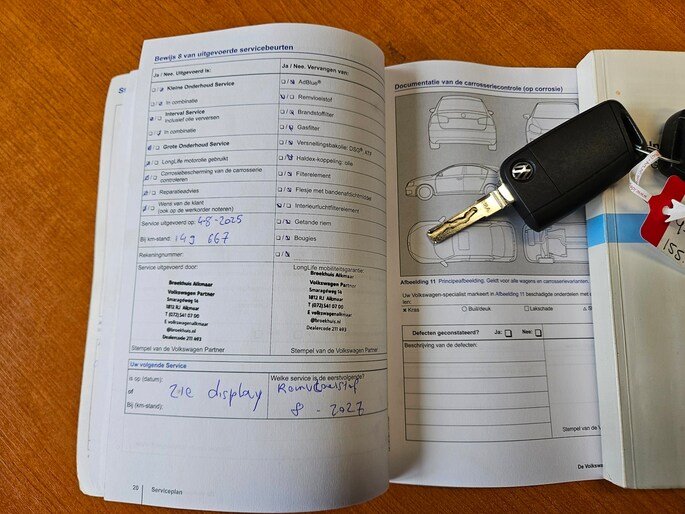 Bewijs 8 van uitgevoerde servicebeurten
Ja / Nee. Uitgevoerd is:
Kleine Onderhoud Service
In combinatie
Interval Service
inclusief olie verversen
In combinatie
Grote Onderhoud Service
LongLife motorolie gebruikt
Corrosiebescherming van de carrosserie
controleren
Reparatieadvies
Wens van de klant
(ook op de werkorder noteren)
Service uitgevoerd op: 4-8-2025
Bij km-stand: 149 667
Rekeningnummer:
Service uitgevoerd door:
Broekhuis Alkmaar
Volkswagen Partner
Smaragdweg 14
1812 RJ Alkmaar
T (072) 541 07 00
E volkswagenalkmaar
@broekhuis.nl
Dealercode 211 693
Stempel van de Volkswagen Partner
Ja / Nee. Vervangen van:
AdBlue®
Remvloeistof
Brandstoffilter
Gasfilter
Versnellingsbakolie: DSG®, ATF
Haldex-koppeling: olie
Filterelement
Flesje met bandenafdichtmiddel
Interieurluchtfilterelement
Getande riem
Bougies
LongLife mobiliteitsgarantie:
Broekhuis Alkmaar
Volkswagen Partner
Smaragdweg 14
1812 RJ Alkmaar
T (072) 541 07 00
E volkswagenalkmaar
@broekhuis.nl
Dealercode 211 693
Stempel van de Volkswagen Partner
Uw volgende Service
is op (datum):
of
Bij (km-stand):
zie display
Welke service is de eerstvolgende?
Remvloeistof
8 - 2027
20 Serviceplan
Documentatie van de carrosseriecontrole (op corrosie)
Afbeelding 11 Principeafbeelding. Geldt voor alle wagens en carrosserievarianten.
Uw Volkswagen-specialist markeert in Afbeelding 11 beschadigde onderdelen met
Kras
Buil/deuk
Lakschade
Defecten geconstateerd? Ja: Nee:
Beschrijving van de defecten:
Stempel van de
De Volkswag